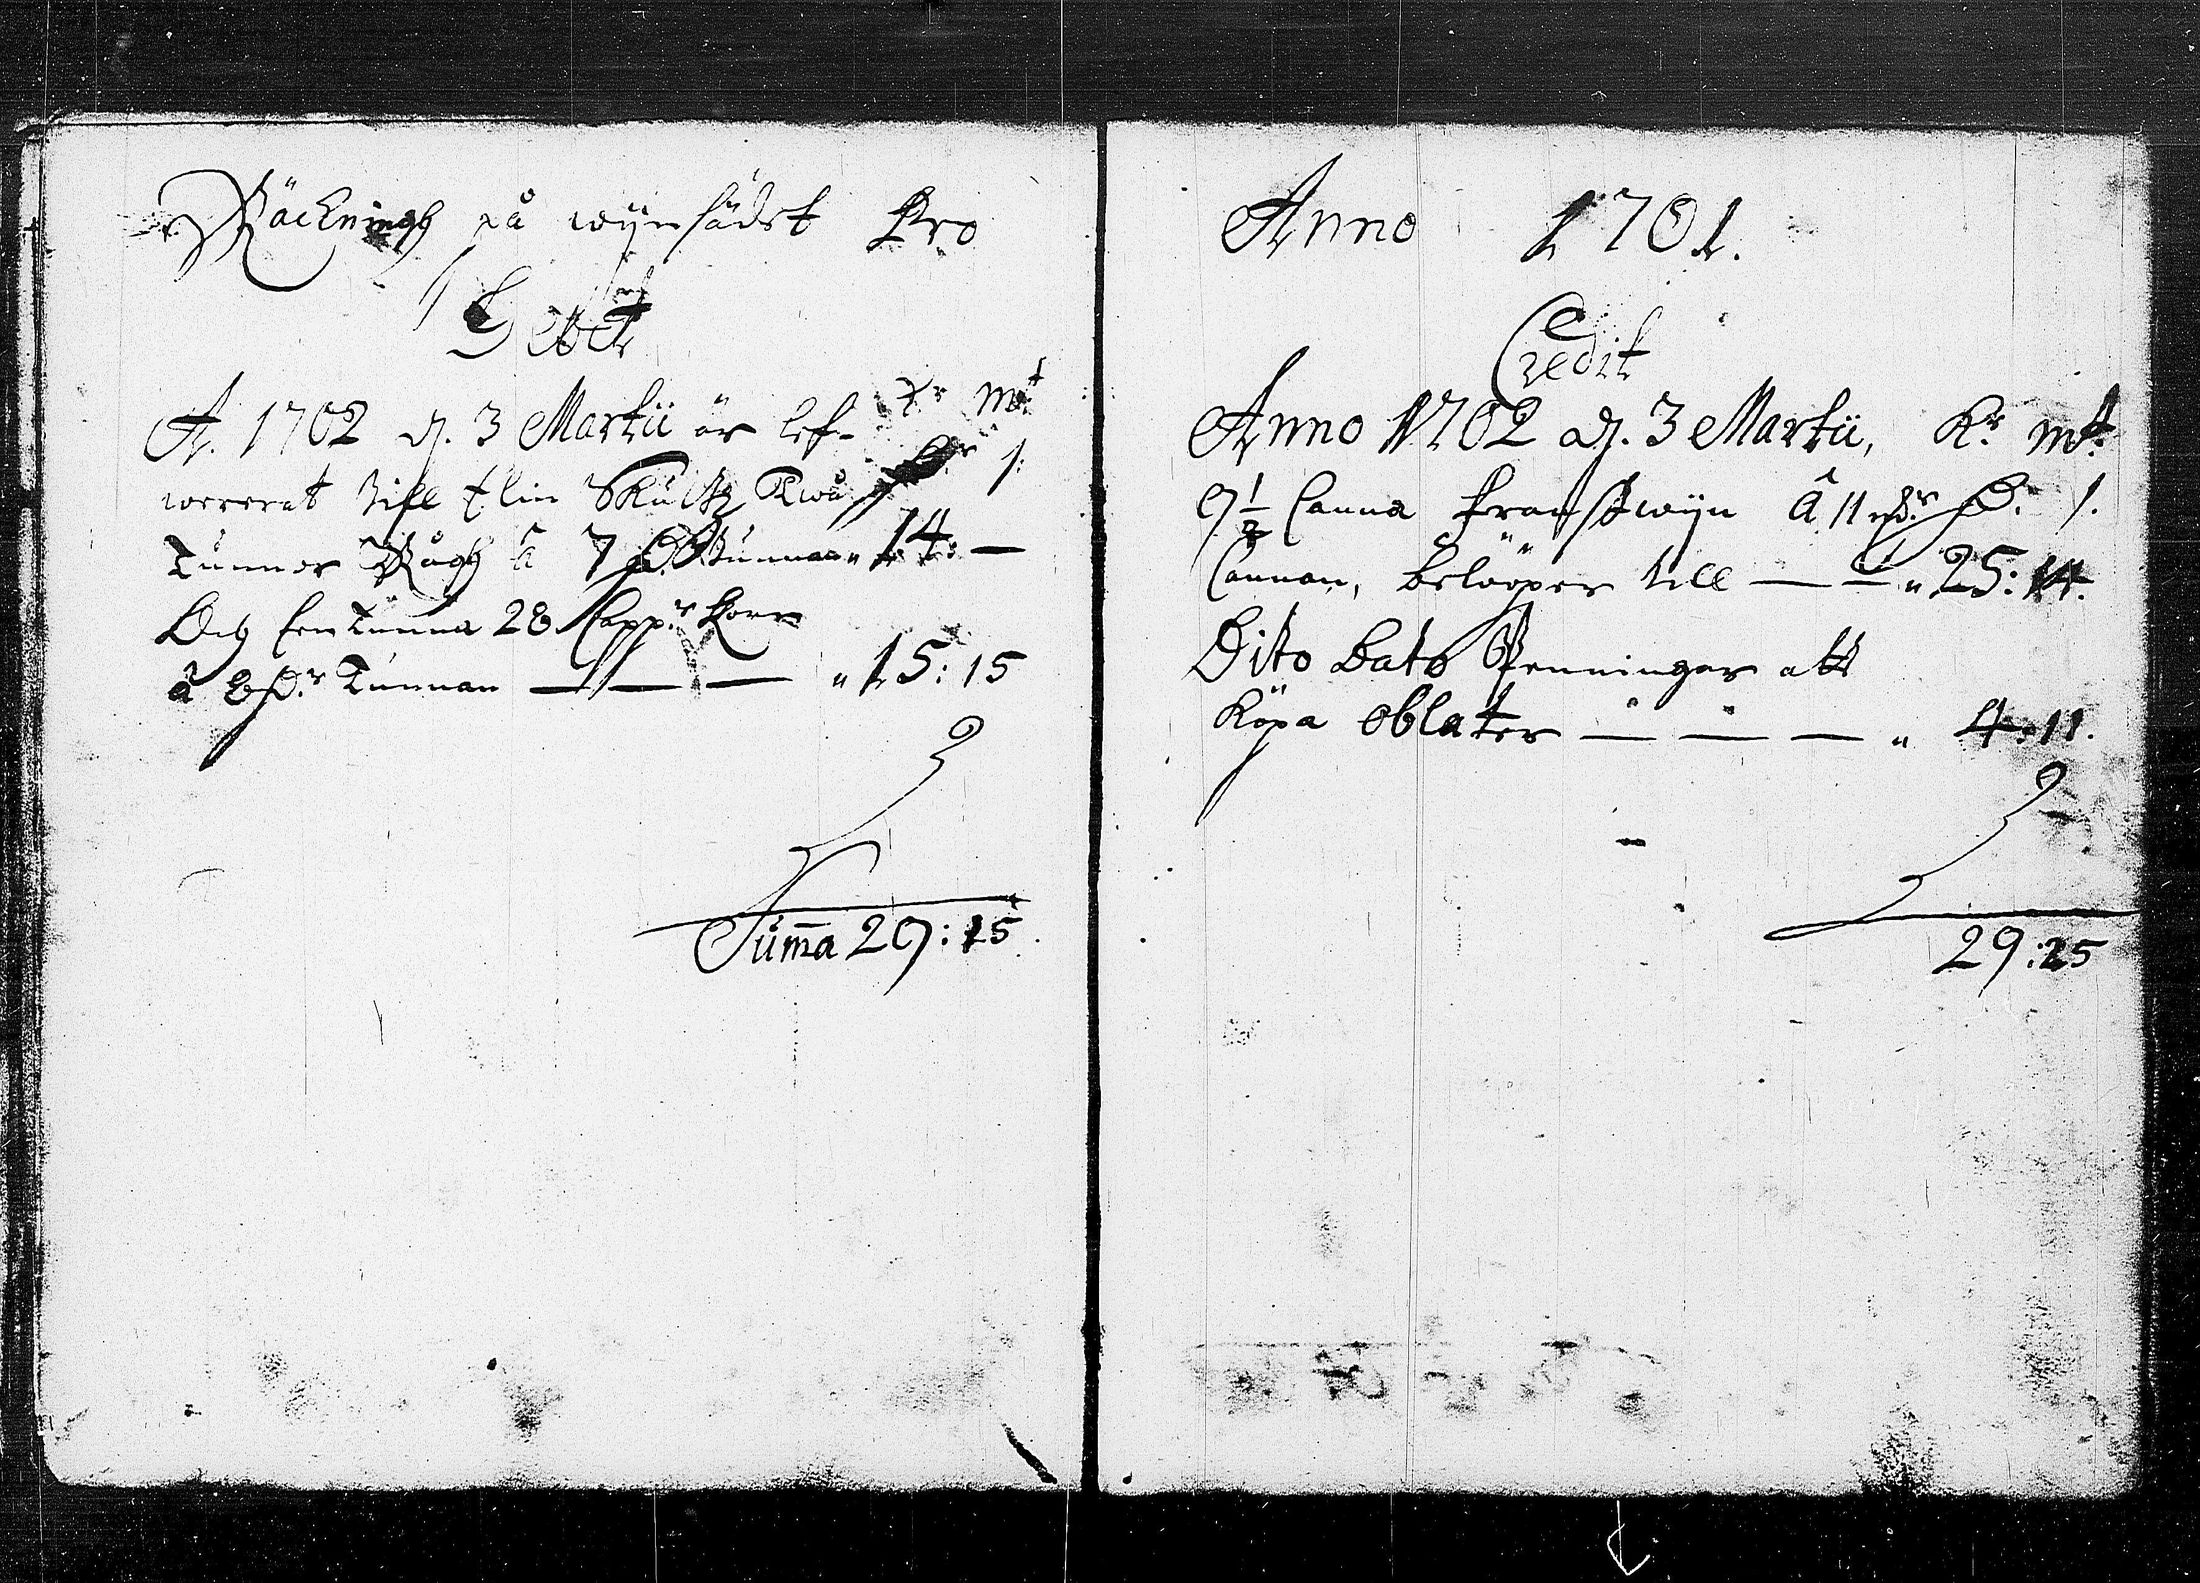 Räckningh på wijnsädet Pro
Debet
A. 1702 d. 3 Martii är lef- Kr mt
wererat till Elin Skultz Twå
Tunnor Rågh â 7 D.r Tunnan „ 14: —
Och Een Tunna 28 Capp.r Korn
â 8 D.r Tunnan — — — „ 15: 15
Suma 29: 15.
Anno 1701.
Credit
Anno 1702 d. 3 Martii, K.r mt.
9 1/2 Canna Franskwijn â 11 D.r
Cannan, belöper till — — „ 25: 14.
Dito Dato Penningar att
Köpa oblater — — — „ 4: 11.
29: 25